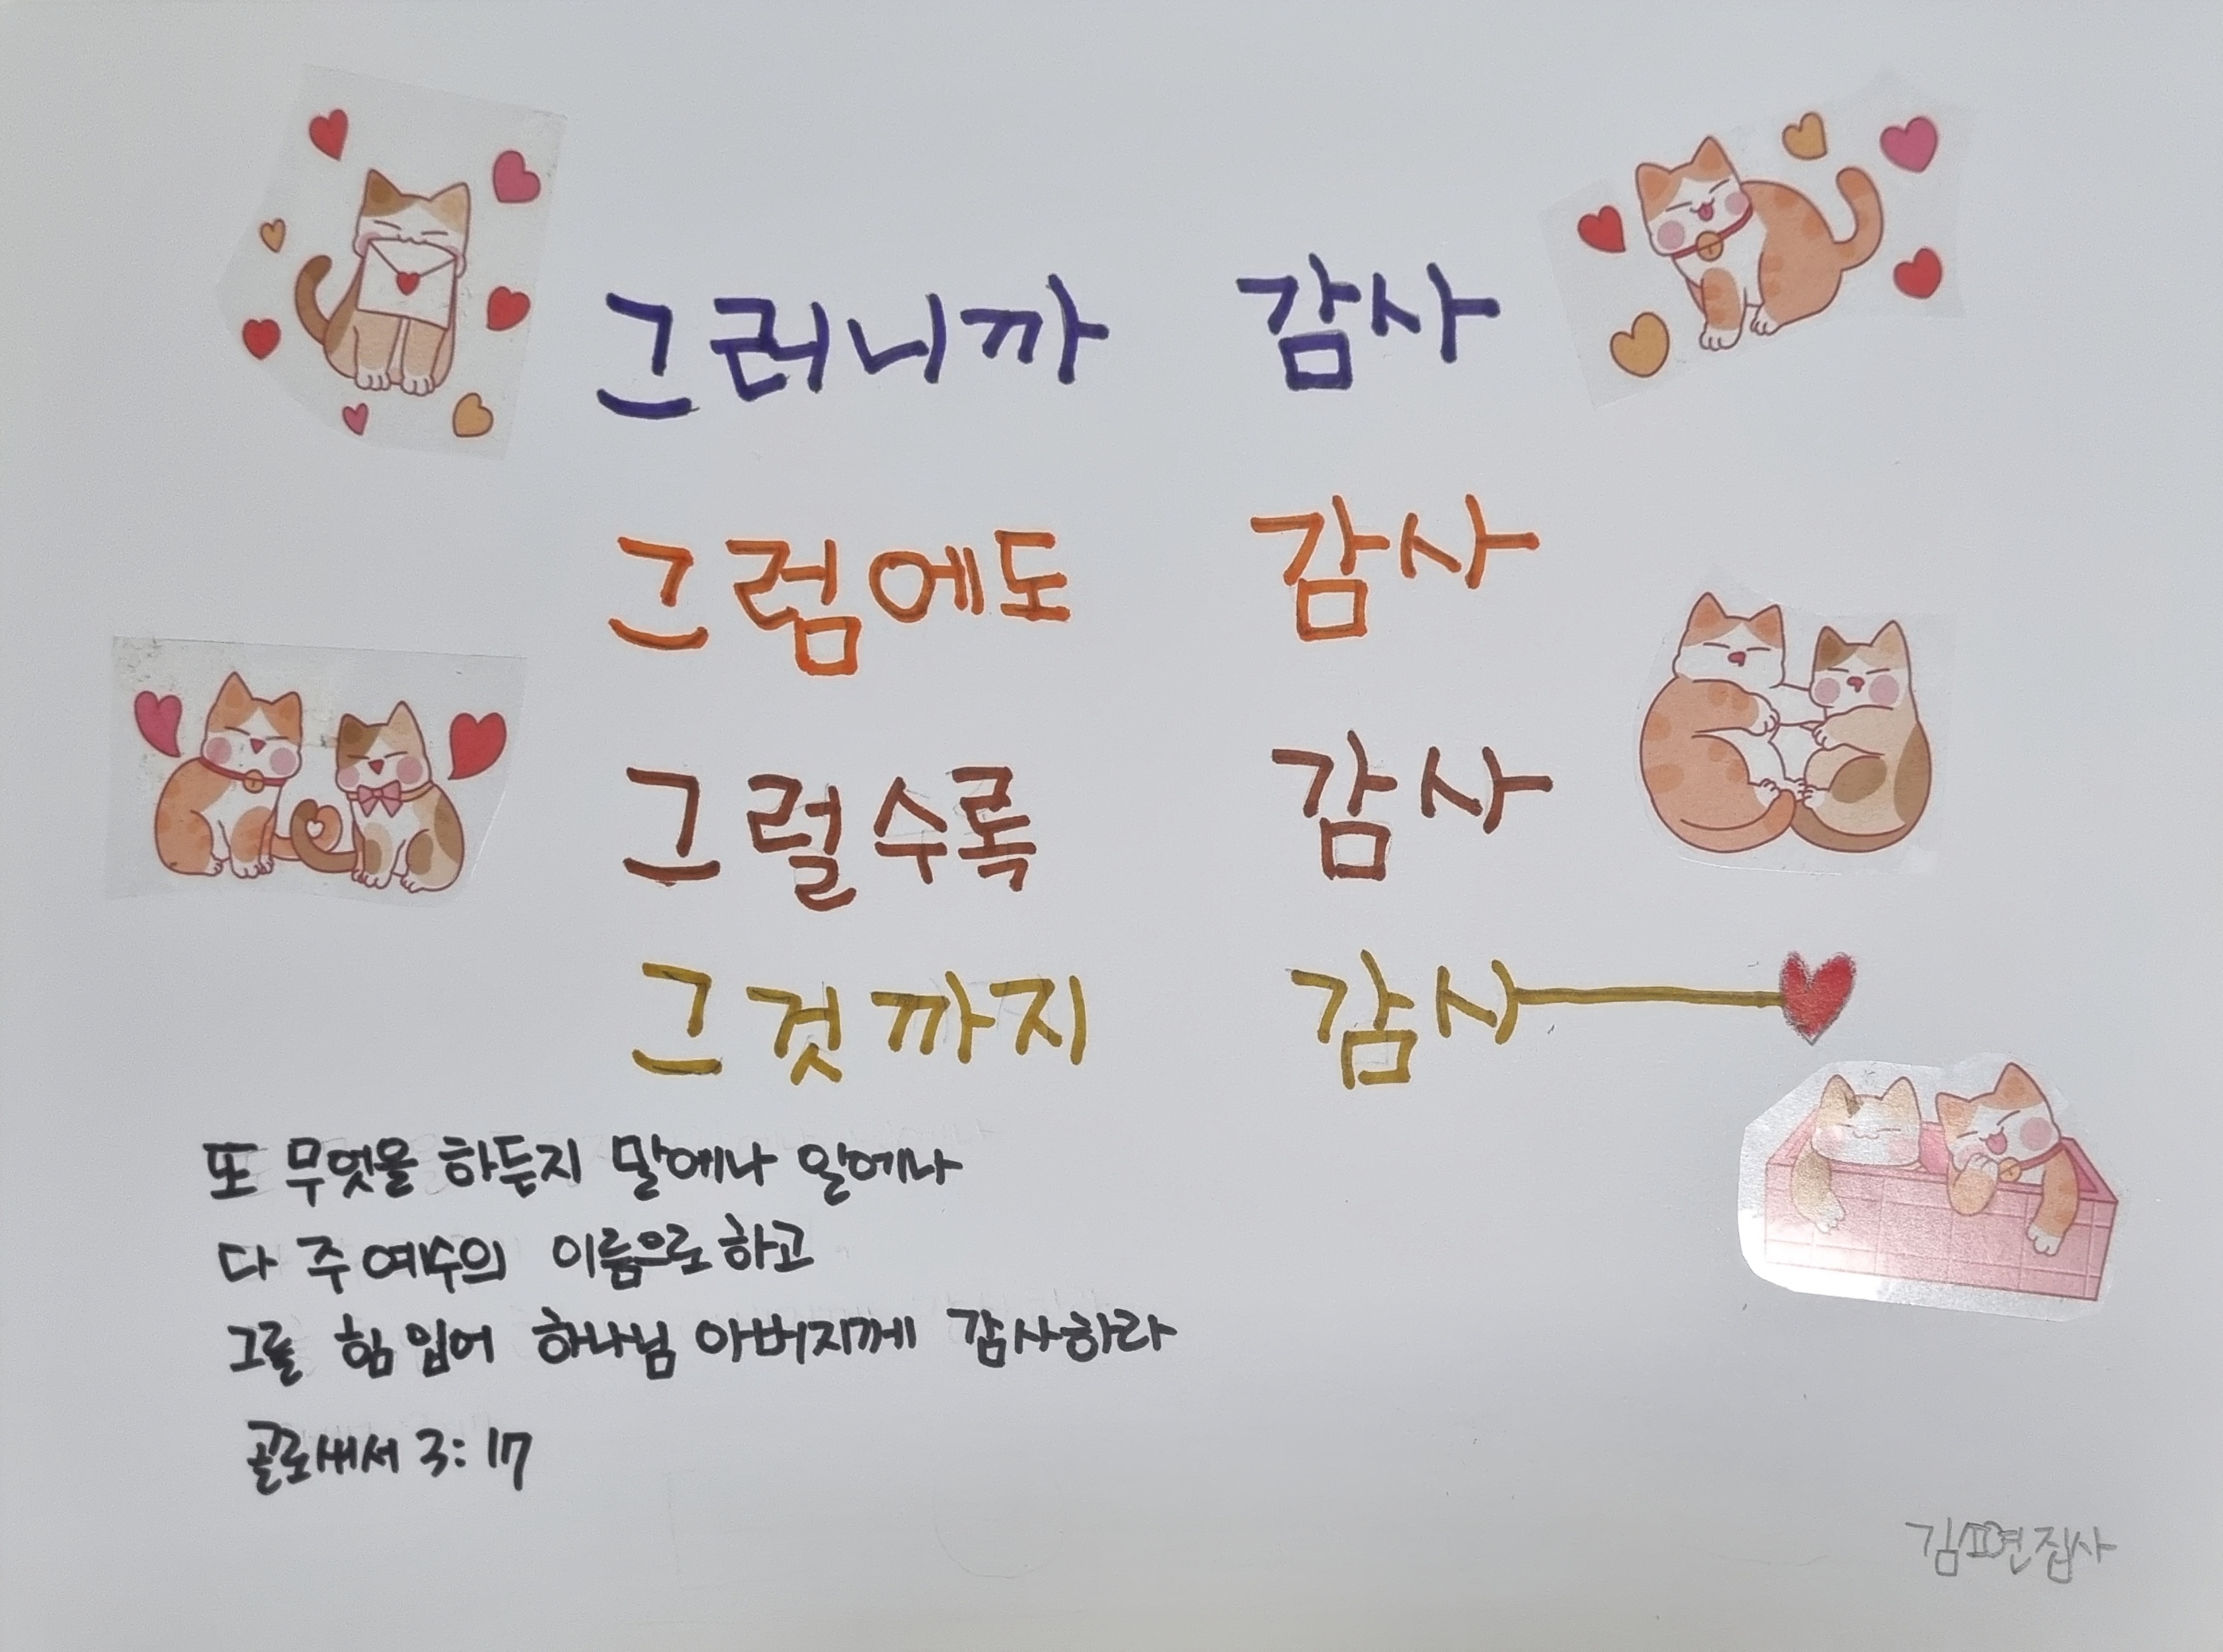 그러니까 감사
그럼에도 감사
그럴수록 감사
그것까지 감사
또 무엇을 하든지 말에나 일에나
다 주 예수의 이름으로 하고
그를 힘 입어 하나님 아버지께 감사하라
골로새서 3:17
집사